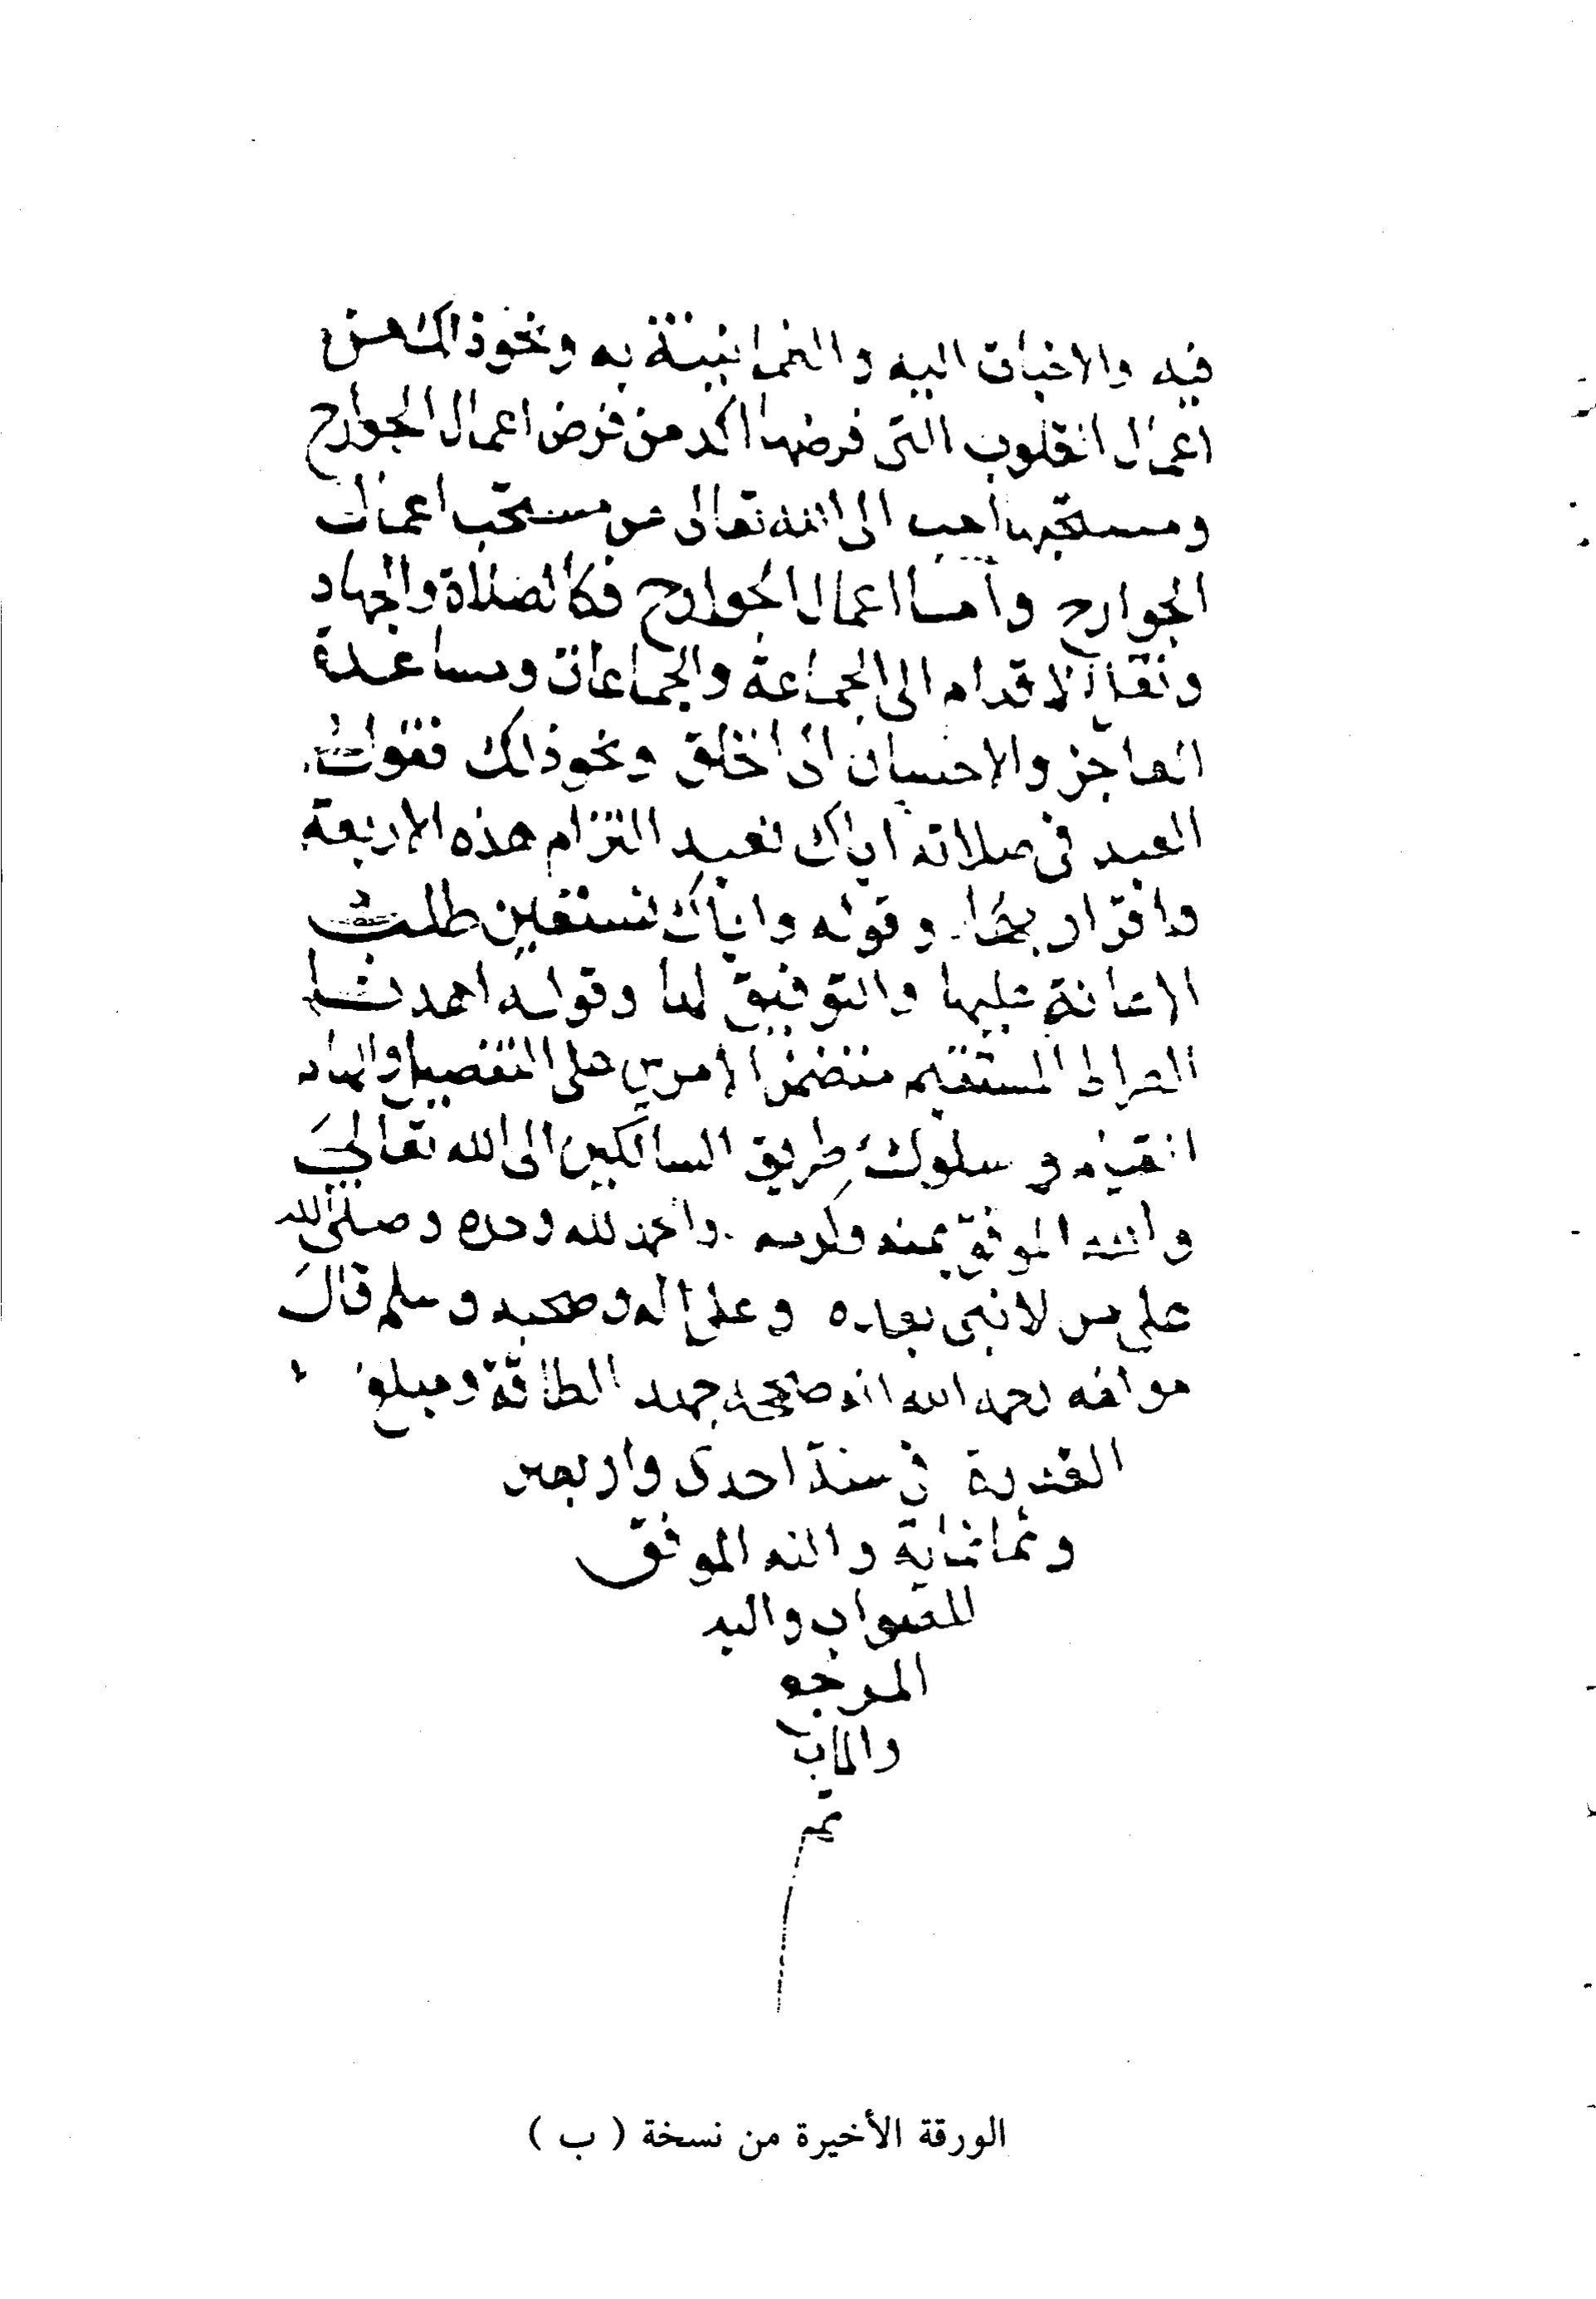 فيه والاخبات اليه والطمانينة به ونحو ذلك من
اعمال القلوب التى فرضها اكد من فرض اعمال الجوارح
ومستحبها احب الى الله تعالى من مستحب اعمال
الجوارح وأما اعمال الجوارح فكالصلاة والجهاد
ونقل الاقدام الى الجماعة والجماعات ومساعدة
العاجز والاحسان الى الخلق ونحو ذلك فقول
العبد فى صلاته اياك نعبد التزام هذه الاربعة
واقرار بها وقوله واياك نستعين طلب
الاعانة عليها والتوفيق لها وقوله اهدنا
الصراط المستقيم متضمن الامرين على التفصيل والهام
القيام وسلوك طريق السالكين الى الله تعالى
والله الموفق بمنه وكرمه والحمد لله وحده وصلى الله
على من لا نبى بعده وعلى اله وصحبه وسلم قال
مولفه رحمه الله انه صححه جهد الطاقة ومبلغ
القدرة فى سنة احدى واربعين
وثمانماية والله الموفق
للصواب واليه
المرجع
والماب
تم
الورقة الأخيرة من نسخة ( ب )